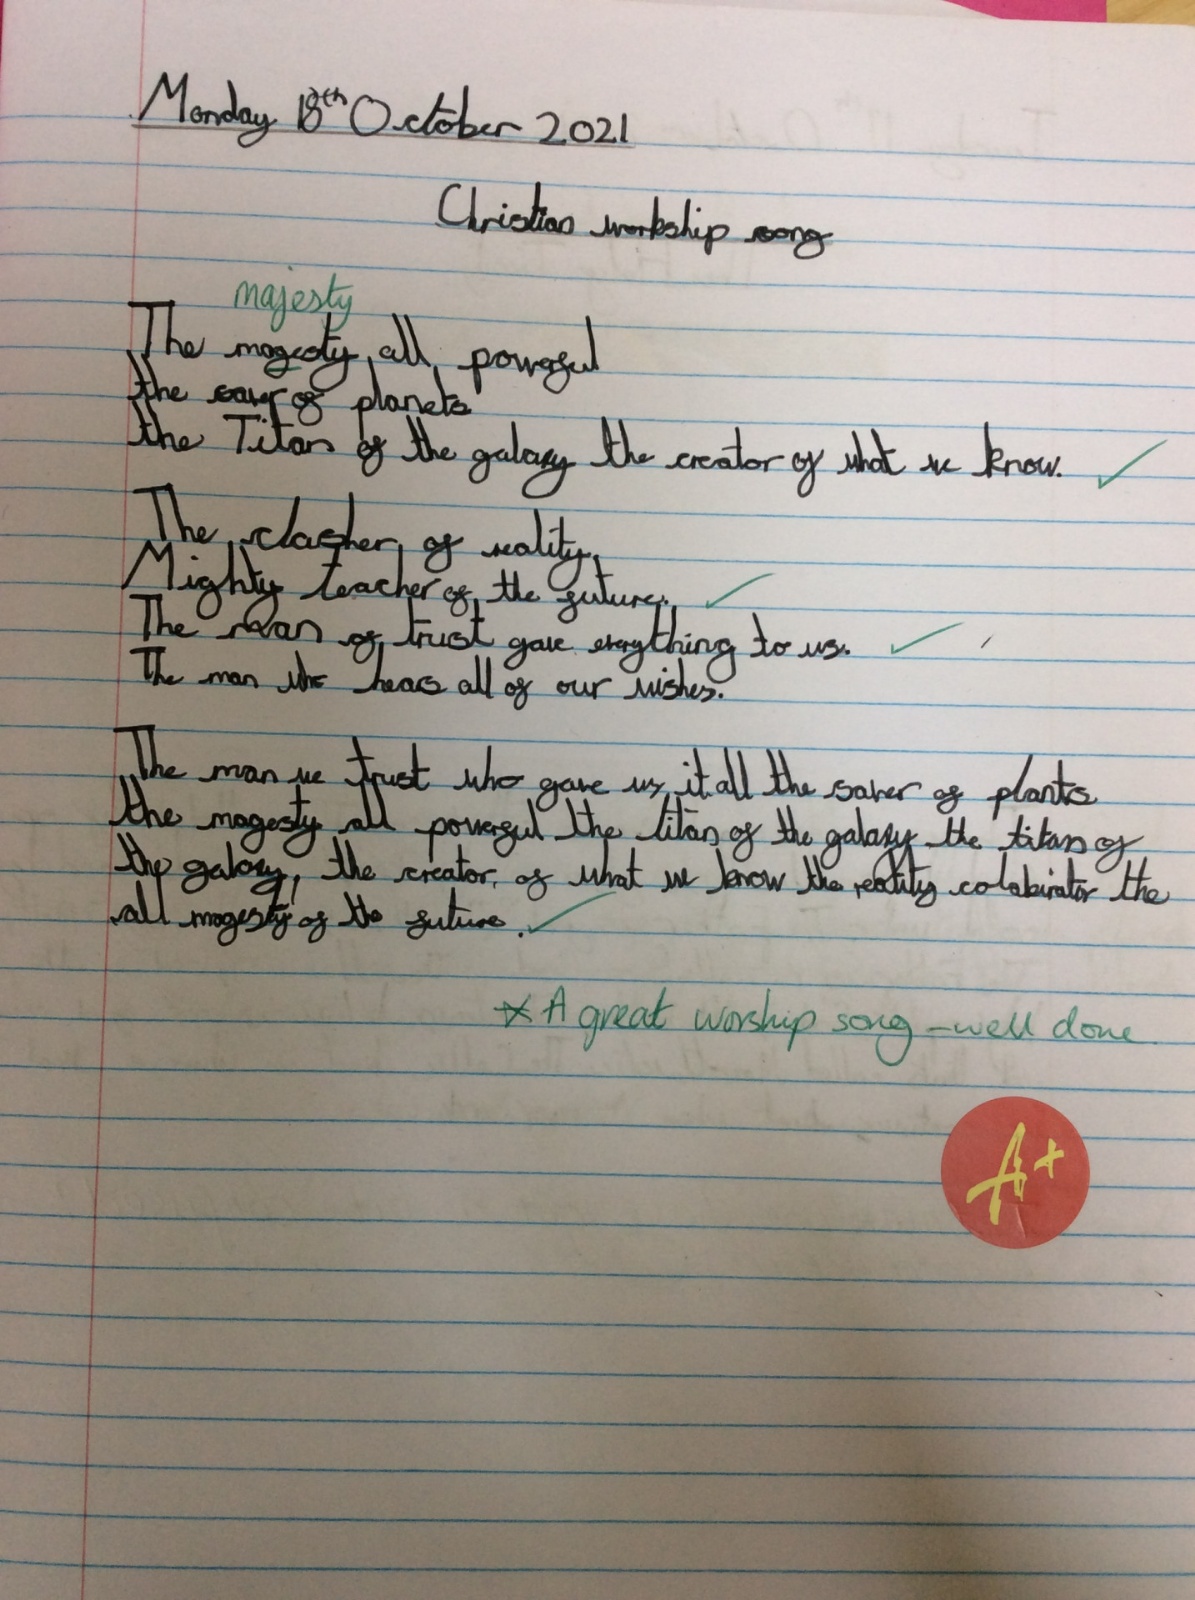 Monday 18th October 2021
Christian workship song
majesty
The magesty all powerful
the saver of planets
the Titan of the galaxy the creator of what we know.
The clasher of reality,
Mighty teacher of the future.
The man of trust gave everything to us.
The man who hears all of our wishes.
The man we trust who gave us it all the saver of plants
the magesty all powerful the titan of the galaxy the titan of
the galaxy, the creator of what we know the reality colabirator the
all magesty of the future.
* A great worship song - well done
A+